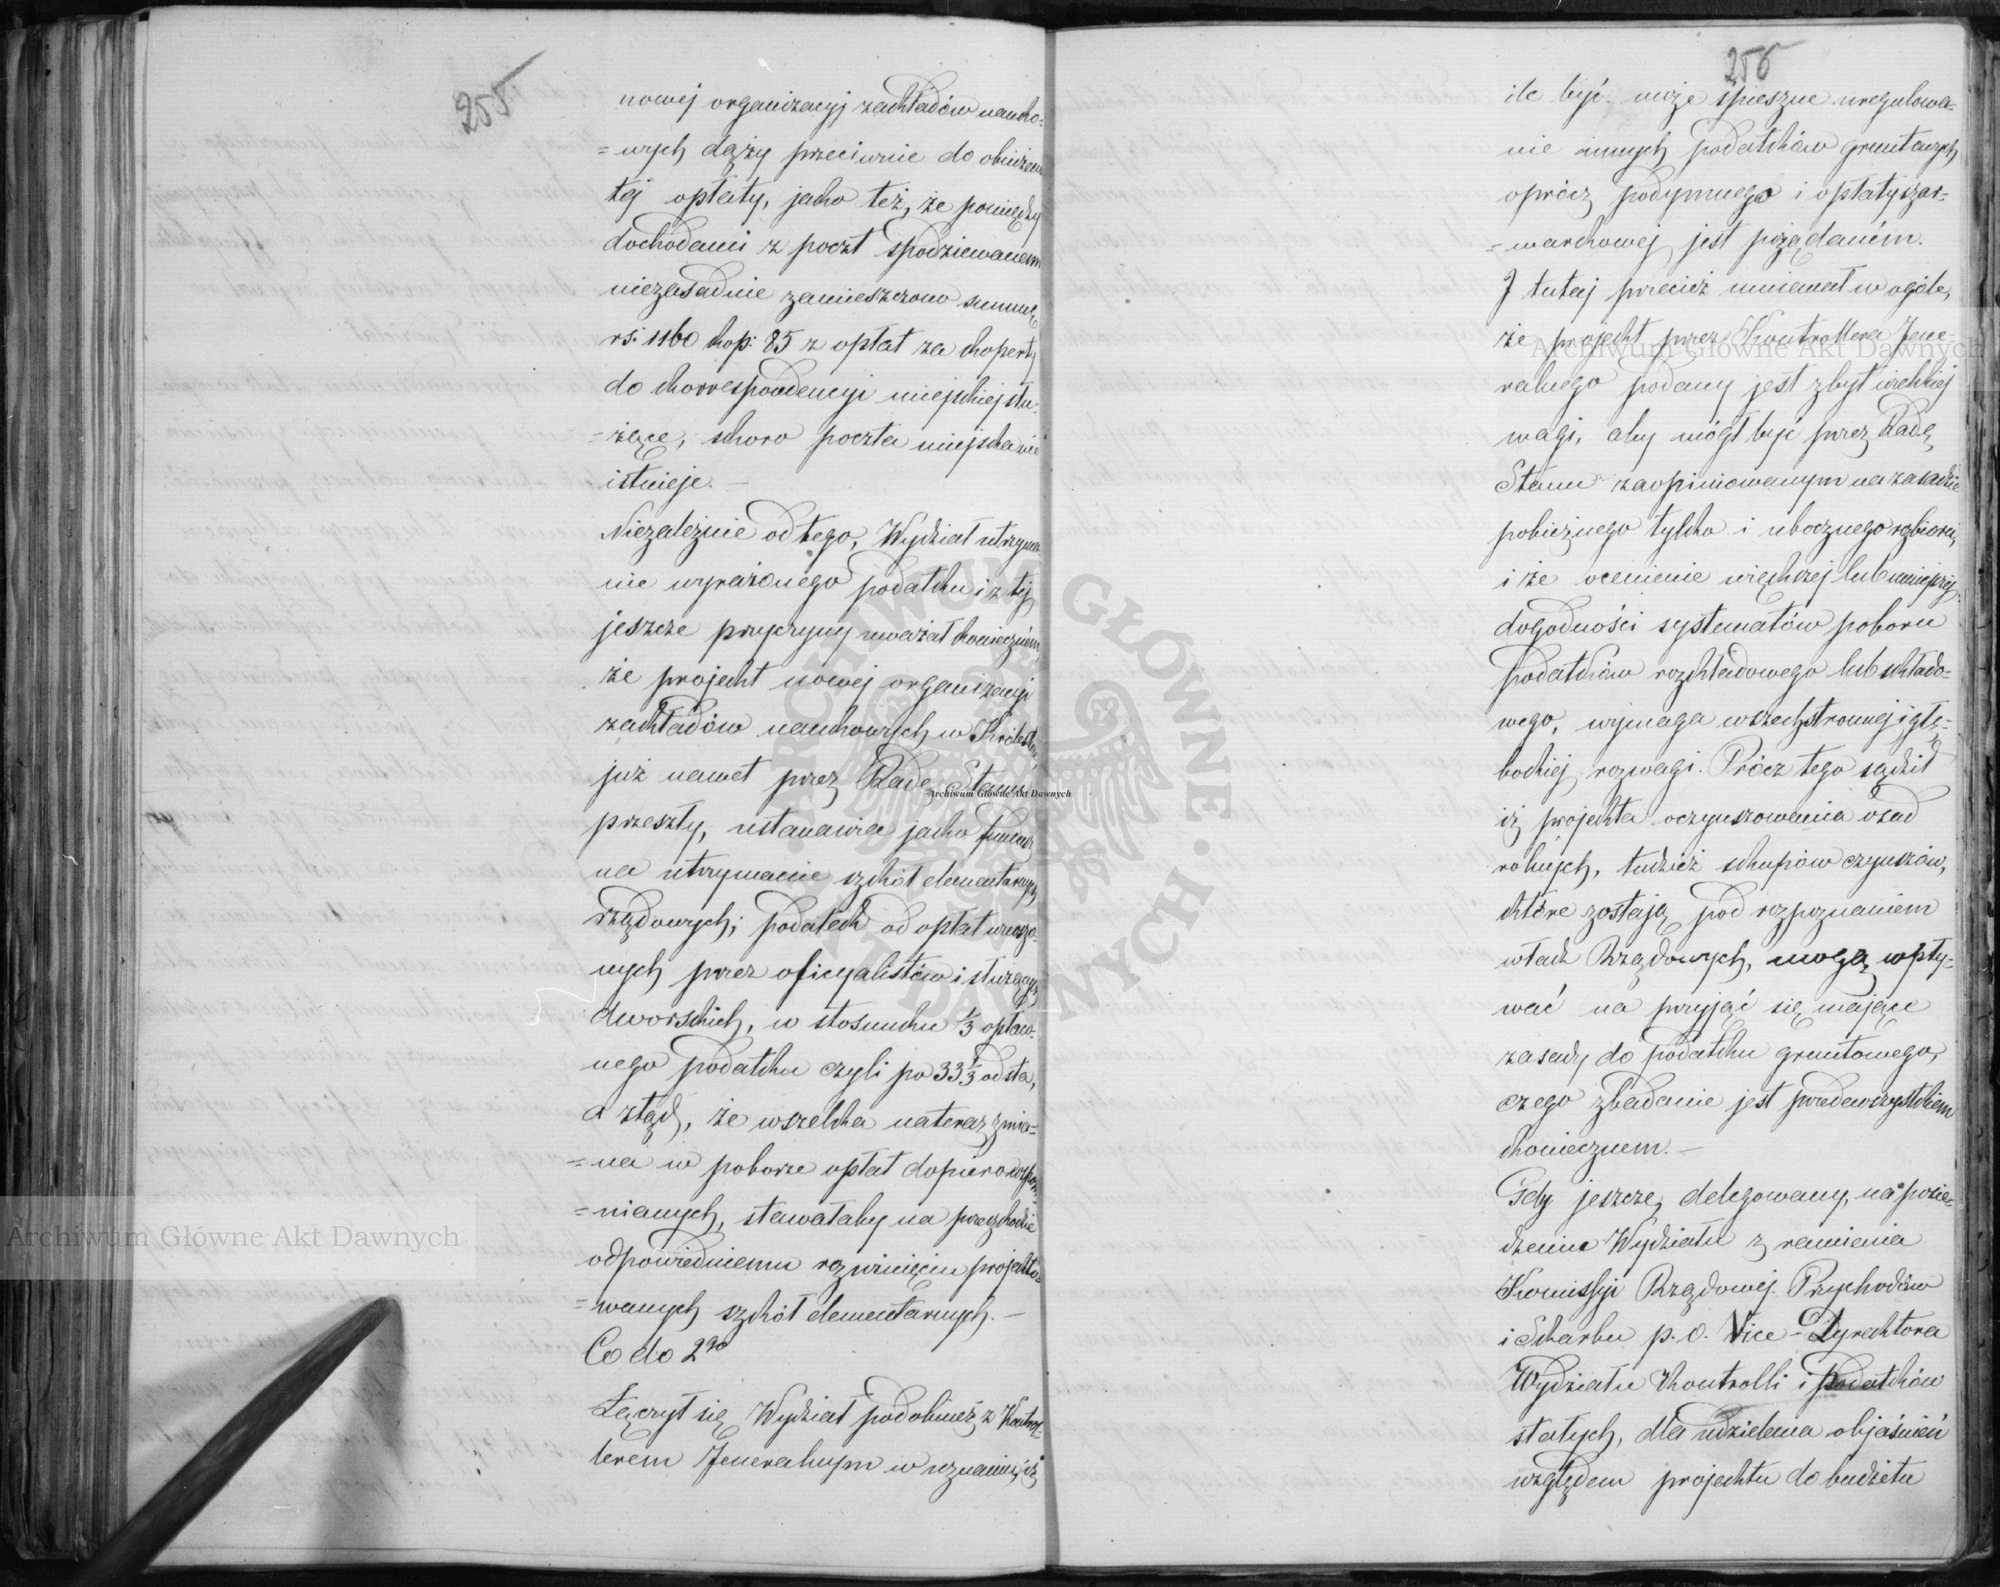 255
nowej organizacyj zakładów nauko-
=wych dąży przeciwnie do obniżenia
tej opłaty, jako też, że pomiędzy
dochodami z poczt spodziewanemi
niezasadnie zamieszczono summę
rs: 1160 kop: 85 z opłat za koperty
do korrespondencyi miejskiej słu-
=żące, skoro poczta miejska nie
istnieje. —
Niezależnie od tego, Wydział utrzyma-
nie wyrażonego podatku i z tej
jeszcze przyczyny uważał koniecznem,
że projekt nowej organizacyi
zakładów naukowych w Królestwie,
już nawet przez Radę Stanu
przeszły, ustanawia jako fundusz
na utrzymanie szkół elementarnych
rządowych; podatek od opłat wnoszo-
nych przez oficyalistów i służących
dworskich, w stosunku 1/3 opłaco-
nego podatku czyli po 33 1/3 od sta,
a ztąd, że wszelka nateraz zmia-
=na w poborze opłat dopiero wspom-
=nianych, stawałaby na przeszkodzie
odpowiedniemu rozwinięciu projekto-
=wanych szkół elementarnych. —
Co do 2go
Łączył się Wydział podobnież z Kontrol-
lerem Jeneralnym w uznaniu, iż
256
ile być może śpieszne uregulowa-
nie innych podatków gruntowych
oprócz podymnego i opłaty szar-
=warkowej jest pożądaném.
I tutaj przecież mniemał w ogóle,
że projekt przez Kontrollera Jene-
ralnego podany jest zbyt wielkiej
wagi, aby mógł być przez Radę
Stanu zaopiniowanym na zasadzie
pobieżnego tylko i ubocznego rozbioru,
i że ocenienie większej lub mniejszej
dogodności systematów poboru
podatków rozkładowego lub składo-
wego, wymaga wszechstronnej i głę-
bokiej rozwagi. Prócz tego sądził
iż projekta oczynszowania osad
rolnych, tudzież skupów czynszów,
które zostają pod rozpoznaniem
władz Rządowych, mogą wpły-
wać na przyjąć się mające
zasady do podatku gruntowego,
czego zbadanie jest przedewszystkiem
koniecznem. —
Gdy jeszcze, delegowany, na posie-
dzenie Wydziału z ramienia
Kommissyi Rządowej Przychodów
i Skarbu p. o. Vice-Dyrektora
Wydziału Kontrolli i podatków
stałych, dla udzielenia objaśnień
względem projektu do budżetu
Archiwum Główne Akt Dawnych
Archiwum Główne Akt Dawnych
Archiwum Główne Akt Dawnych
ARCHIWUM GŁÓWNE AKT DAWNYCH